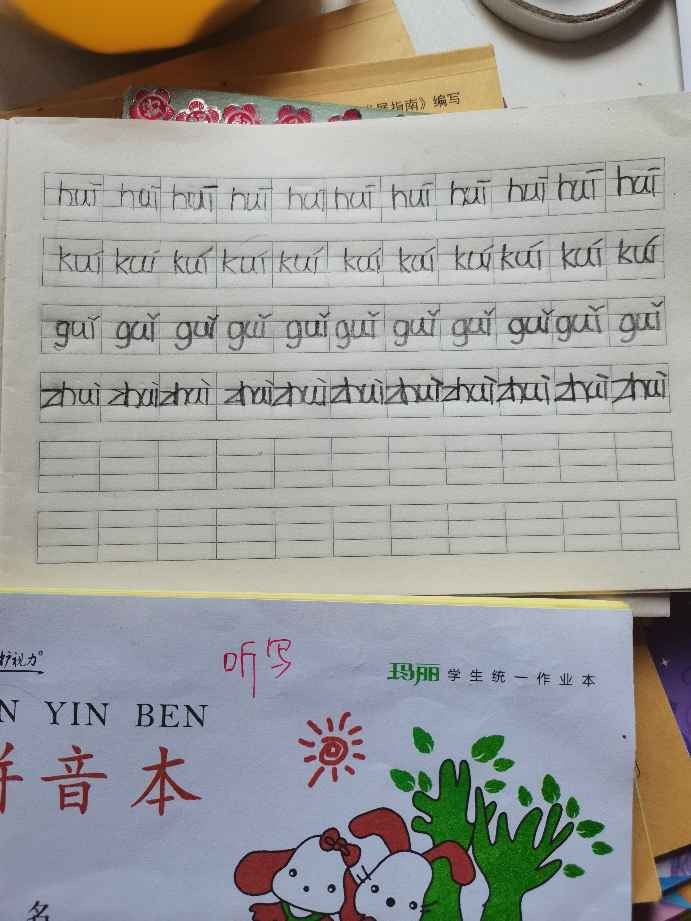 展指南》编写
huī huī huī huī huī huī huī huī huī huī huī
kuí kuí kuí kuí kuí kuí kuí kuí kuí kuí kuí
guǐ guǐ guǐ guǐ guǐ guǐ guǐ guǐ guǐ guǐ guǐ
zhuì zhuì zhuì zhuì zhuì zhuì zhuì zhuì zhuì zhuì zhuì
护视力®
听写
玛丽 学生统一作业本
N YIN BEN
拼音本
名